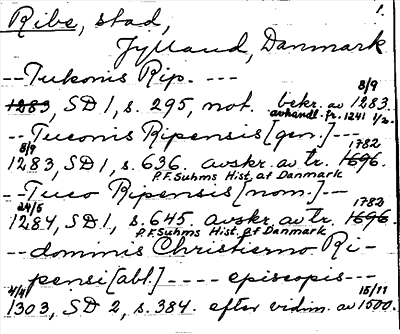 Ribe, stad, 1.
Jylland, Danmark
--Tukonis Rip. ---
8/9
1283, SD 1, s. 295, not. bekr. av 1283.
avhandl. fr. 1241 1/2.
--Tuconis Ripensis [gen.]---
8/9 1782
1283, SD 1, s. 636. avskr. av tr. 1696.
P.F. Suhms Hist. af Danmark
-Tuco Ripensis [nom.]--
24/6 1782
1284, SD 1, s. 645. avskr. av tr. 1696.
P.F. Suhms Hist. af Danmark
--dominis Christierno Ri-
pensi [abl.] ---- episcopis---
4/41 15/11
1303, SD 2, s. 384. efter vidim. av 1500.